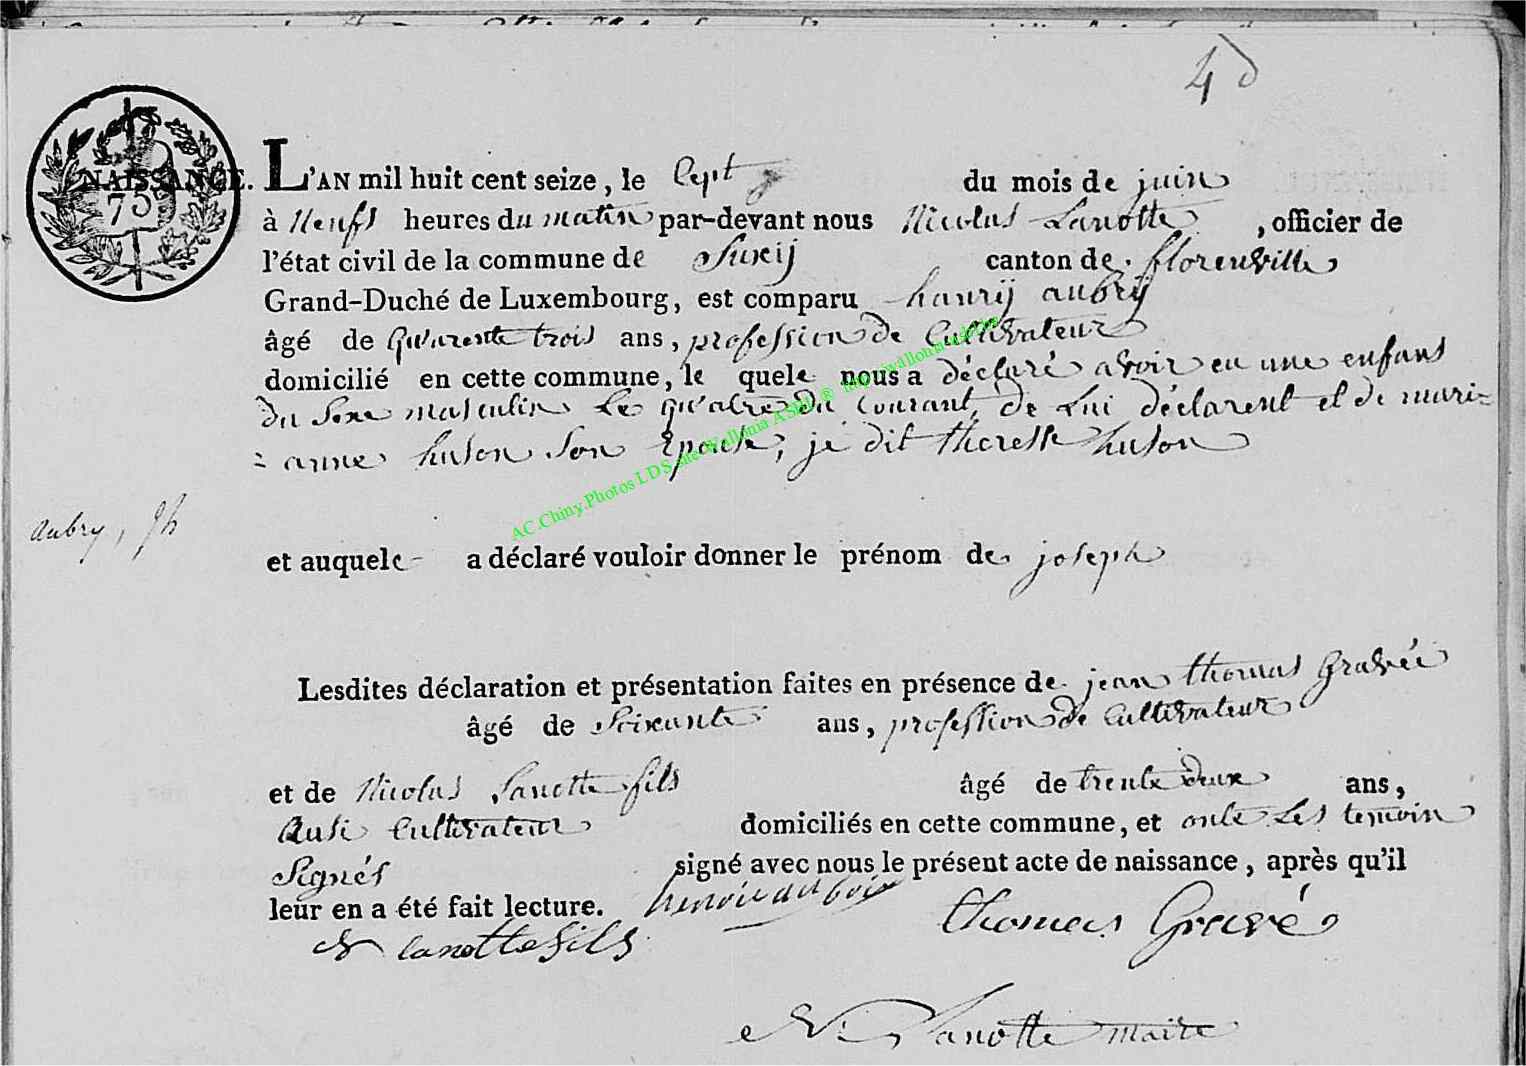 4
NAISSANCE.
75
L'AN mil huit cent seize, le Sept du mois de juin
à Neufs heures du matin par-devant nous Nicolas Lanotte, officier de
l'état civil de la commune de Suxij canton de florenville
Grand-Duché de Luxembourg, est comparu hanrij aubrij
âgé de quarente trois ans, profession de Cultivateur
domicilié en cette commune, le quele nous a déclaré avoir eu une enfans
du Sexe masculin le quatre du Courant, de Lui déclarent et de mari=
=anne huson Son Epouse, je dit theresse huson
AC.Chiny.Photos LDS.
aubry, Jh
et auquele a déclaré vouloir donner le prénom de joseph
Lesdites déclaration et présentation faites en présence de jean thomas Gravée
âgé de Soixante ans, profession de Cultivateur
et de Nicolas Lanotte fils âgé de trente deux ans,
Ausi Cultivateur domiciliés en cette commune, et onte Les temoin
Signés signé avec nous le présent acte de naissance, après qu'il
leur en a été fait lecture.
thomas Gravé
N lanotte fils
N. Lanotte maire